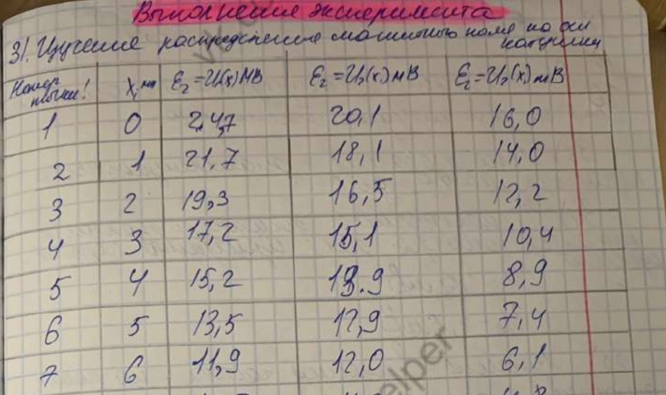 Выполнение эксперимента
3). Изучение распределения магнитного поля по оси катушки
Номер точки! X, мм E₂=U₁(x) мВ E₂=U₂(x) мВ E₂=U₃(x) мВ
1 0 24,7 20,1 16,0
2 1 21,7 18,1 14,0
3 2 19,3 16,5 12,2
4 3 17,2 15,1 10,4
5 4 15,2 13.9 8,9
6 5 13,5 12,9 7,4
7 6 11,9 12,0 6,1
elper